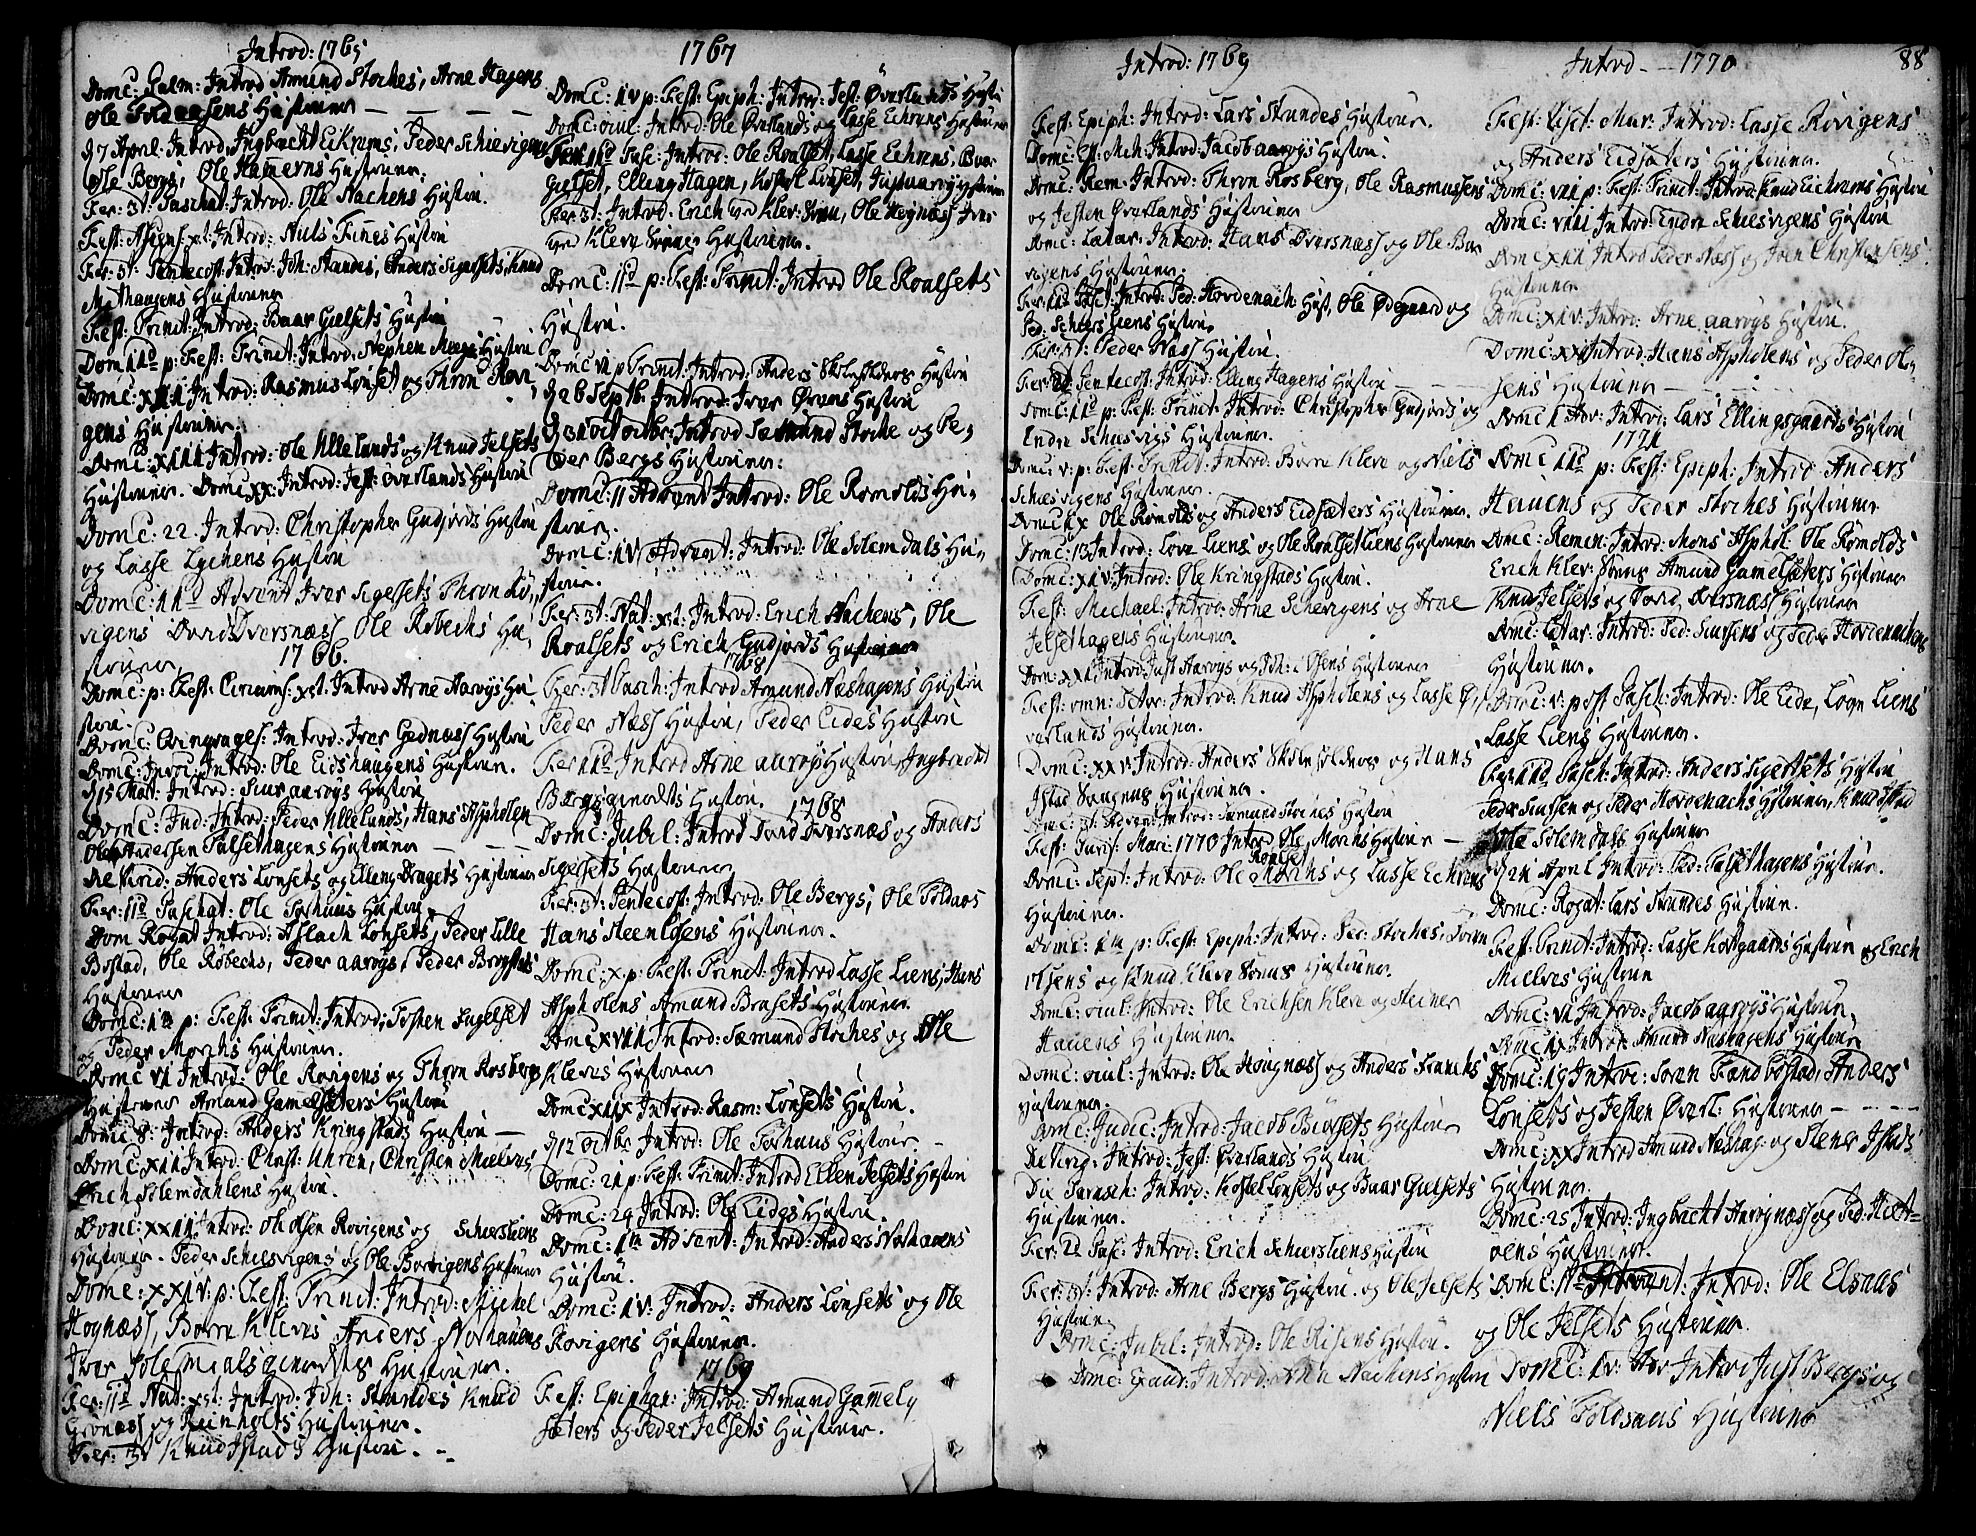 Introd: 1765
Domc: Palm: Introd Amund Stoches, Arne Hagens
Ole Foldnæsens Hustouer
d 7 April: Introd Ingbricht Eikrems, Peder Schievigens
Ole Bergs, Ole Hamerns Hustouner.
Fer: 3t: Paschat: Introd: Ole Nachens Husto͞u.
Fest: Ascens: xt: Introd: Niels Fines Husto͞u
Fer: 3t: Pentecost: Introd: Joh: Standes, Anders Sigersets, Knud
Mothaugens Hustouner
Fest: Trinit: Introd: Baar Gielsets Husto͞u
Dom 11d p: Fest: Trinit: Introd: Stephen Hustou
Domc: XIII Introd: Rasmus Lonset og Thron Røvi-
gens Hustouner.
Domc: XIIII Introd: Ole Ullelands og Knud Jelsets
Hustouner. Domc: XX: Introd: Jest: Øverlands Hustou
Domc: 22. Introd: Christopher Gudjords Husto͞u
og Lasse Lychens Husto͞u
Domc: 11d Advent Iver Sigersets Thron Rø-
vigens David Dversnæss Ole Røbechs Hu-
stouner.
1766.
Domc: p: Fest: Circums: xst: Introd Arne Aarøys Hu-
sto͞u.
Domc: Qvinqvages: Introd: Iver Gudnæss Husto͞u
Domc: Invoc: Introd: Ole Eidshaugens Hustoue.
d 15 Mart: Introd: Siur aarøys Hustou
Domc: Jud: Introd: Peder Ullelunds, Hans Aspholen
Ole Andersen Talsethagens Hustouner
Die Virid: Anders Lonsets og Elling Dragets Hustouner
Fer: 11d Paschat: Ole Forhuus Husto͞u
Dom Rogat Introd: Aslach Lonsets, Peder Lille
Bostad, Ole Røbechs, Peder aarøys, Peder
Hustouner
Domc: 1ma p: Fest: Trinit: Introd: Tosten Jugelset
og Peder Morchs Hustouner.
Domc VI Introd: Ole Røvigens og Thron Rosbergs
Hustouner Amund Gamelsæters Husto͞u
Domc 8: Introd: Anders Kringstads Husto͞u
Domc: XIII Introd: Christ: Uhren, Christen Mielves
Erich Solemdahlens Husto͞u.
Domc: XXIII: Introd: Ole Olsen Røvigens og Scheersliens
Hustouner. Peder Schiesvigens og Ole Borrigens Hustouer
Domc: XXIV: p: Fest: Trinit: Introd: Michel
Hognæss, Børre Kleves Anders Norhauens
Iver Solesmoals Hustouner.
Fer: 11d Nat: xst: Introd: Joh: Strandes Knud
Grønæss og Reinholts Hustouner.
Fer: 3t Knud Istad's Husto͞u.
1767
Domc: IV p: Fest: Epiph: Introd: Jest: Øverlands Husto͞u
Domc: ocul: Introd: Ole Øverlands og Lasse Echrens Hustouer
Fer: 11d Pasc: Introd: Ole Roalset, Lasse Echrens, Baar
Gielset, Elling Hagen, Kostel Lonset, Just aarøy Hustouner
Fer: 3t: Introd: Erich ved Klev:, Ole Høgnæss Iver
ved Kleve Hustouner.
Domc: 11d p: Fest: Trinit: Introd Ole Roalsets
Husto͞u.
Domc VI p Trinit: Introd: Anders Skoleholders Husto͞u
d 26 Septb: Introd: Iver Ørens Husto͞u
d 31 octobr: Introd Sæmund Stoche og Pe-
der Bergs Hustouner.
Domc: 11 Advent Introd: Ole Romolds Hu-
stoue.
Domc: IV: Advent: Introd: Ole Solemdals Hu-
stoue.
Fer: 3t: Nat: xst: Introd: Erich Nachens, Ole
Roalsets og Erich Gudjords Hustouner
1768
Fer: 3t Pasch: Introd Amund Næshagens Husto͞u
Peder Næss Husto͞u, Peder Eides Husto͞u
Fer: 11d Introd Arne aarøys Husto͞u, Ingbricht
Bergs Husto͞u.
1768
Domc: Jubil: Introd David Dversnæs og Anders
Sigersets Hustouner
Fer: 3t: Pentecost: Introd: Ole Bergs, Ole Foldnæs
Hans Hustouner.
Domc: X. p: Fest: Trinit: Introd Lasse Liens, Hans
Aspholens Amund Brasets Hustouner.
Domc XVIII Introd: Sæmund Stoches og Ole
Kleves Hustouner
Domc XIX Introd: Rasm: Lonsets Husto͞u.
d 12 octbr Introd: Ole Forhuus Hustoue
Domc: 21 p: Fest: Trinit: Introd Ellen Jelsets Husto͞u
Domc: 24 Introd: Ole Eides Husto͞u.
Domc: 1ma Advent: Introd: Anders Norhauens
Husto͞u.
Domc: IV: Introd: Anders Lonsets og Ole
Røvigens Hustouner.
1769
Fest: Epiphan: Introd: Amund Gamely
sæters og Peder Jelsets Hustouner.
Introd: 1769
Fest: Epiph: Introd: Lars Strandes Hustoue.
Domc: Introd: Jacob aarøys Husto͞u.
Domc: Rem: Introd: Thron Rosberg, Ole Rasmussens
og Jesten Øverlands Hustouner
Domc: Lætar: Introd: Hans Dversnæss og Ole Bor
vigens Hustouner.
Fer: 11d Pasc: Introd: Ped: Hovdenach Hust, Ole Ødegaard og
Ped: Scheersliens Husto͞u.
Fer: 3t: Peder Næss Husto͞u.
Fer: 3t: Pentecost: Introd: Elling Hagens Husto͞u
Domc: 11 p: Fest: Trinit: Introd: Christopher Gudjords og
Endre Schiesvigs Hustouner.
Domc: V: p: Fest: Trinit: Introd: Børre Kleve og Niels
Schiesvigens Hustouner.
Domc IX Ole Romolds og Anders Eidsæters Hustouner.
Domc: 13 Introd: Love Liens og Ole Roalset Liens Hustouner
Domc: XIV: Introd: Ole Kringstads Husto͞u.
Fest: Michael: Introd: Arne Schevigens og Arne
Jelsethagens Hustouner.
Domc: XXI Introd: Just Aarøys og Joh: Olsens Hustouner
Fest: omn: Sctor: Introd: Knud Aspholens og Lasse Ø-
verlands Hustouner.
Domc: XXV: Introd: Anders Skoleholders og Hans
Istad Hustouner.
Domc: 3t: Advent: Introd: Sæmund Stoches Husto͞u
Fest: Purif: Mari: 1770 Introd Ole Morchs Hustoue
Domc: Sept: Introd: Ole Roalset Morchs og Lasse Echrens
Hustouner.
Domc: 1ma p: Fest: Epiph: Introd: Per: Stoches, Joen
Olsens og Knud Hustouner.
Domc: ocul: Introd: Ole Erichsen Kleve og Steiner
Hauens Hustouner.
Domc: ocul: Introd: Ole Høugnæss og Anders
Hustouner.
Domc: Judic: Introd: Jacob Biørsets Hustoue
Die Virid: Introd: Jest: Øverlands Husto͞u.
Die Parasch: Introd: Kostel Lonsets og Baar Gielsets
Hustouner.
Fer: 2d Pasc: Introd: Erich Scheersliens Husto͞u
Fer: 3t: Introd: Arne Bergs Hustou. og Ole Jelsets
Hustoue
Domc: Jubil: Introd: Ole Risens Husto͞u.
Domc: Exaud: Introd: Nachens Husto͞u
Introd - 1770 88
Fest: Visit: Mar: Introd: Lasse Røvigens
og Anders Eidsæters Hustouner.
Domc: VIII p: Fest: Trinit: Introd: Knud Eichrems Husto͞u
Domc: VIIII Introd: Endre Schiesvigens Husto͞u
Domc XIII Introd Peder Næss og Joen Christensens
Hustouner
Domc XIV: Introd: Arne aarøys Husto͞u.
Domc: XX Introd: Hans Aspholens og Peder Ol-
sens Hustouner
Domc 1 Adv: Introd: Lars Ellingsgaards Husto͞u
1771
Domc 11d p: Fest: Epiph: Introd Anders
Hauens og Peder Stoches Hustouner
Domc: Remin: Introd: Mons Asphol Ole Romolds
Erich Klev: Amund Gamelsæters Hustouner
Knud Jelsets og David Dversnæss Hustouner
Domc: Lætar: Introd: Ped: Siursens og Peder Hovdenachens
Hustouner.
Domc: V: post Pasch: Introd: Ole Eide, Love Liens
Lasse Liens Hustouner.
Fer: 11d Pasch: Introd: Anders Sigersets Husto͞u
Peder Siursen og Peder Hovdenachs Hustouner, Knud Istad
Ole Solemdals Hustouner
d 21 April Introd: Ped: Talsethagens Hustoue.
Domc: Rogat: Lars Strandes Hustoue.
Fest: Trinit: Introd: Lasse Kortgaards Hustoue og Erich
Mielves Hustoue
Domc: VI Introd: Jacob aarøys Hustoue.
Domc: IX Introd: Amund Næshagens Hustoue
Domc: 19 Introd: Soren Fandbostad, Anders
Lonsets og Jesten Øverl: Hustouner
Domc: XX Introd Amund Næshag: og Stener Istads
Hustouner.
Domc: 25 Introd: Ingbricht Harøgnæss og Ped: Hiet-
øens Hustouner.
Domc: 11d Advent: Introd: Ole Elsaas
og Ole Jelsets Hustouner.
Domc: IV: Adv Introd Just Bergs og
Niels Foldsnes Hustouner